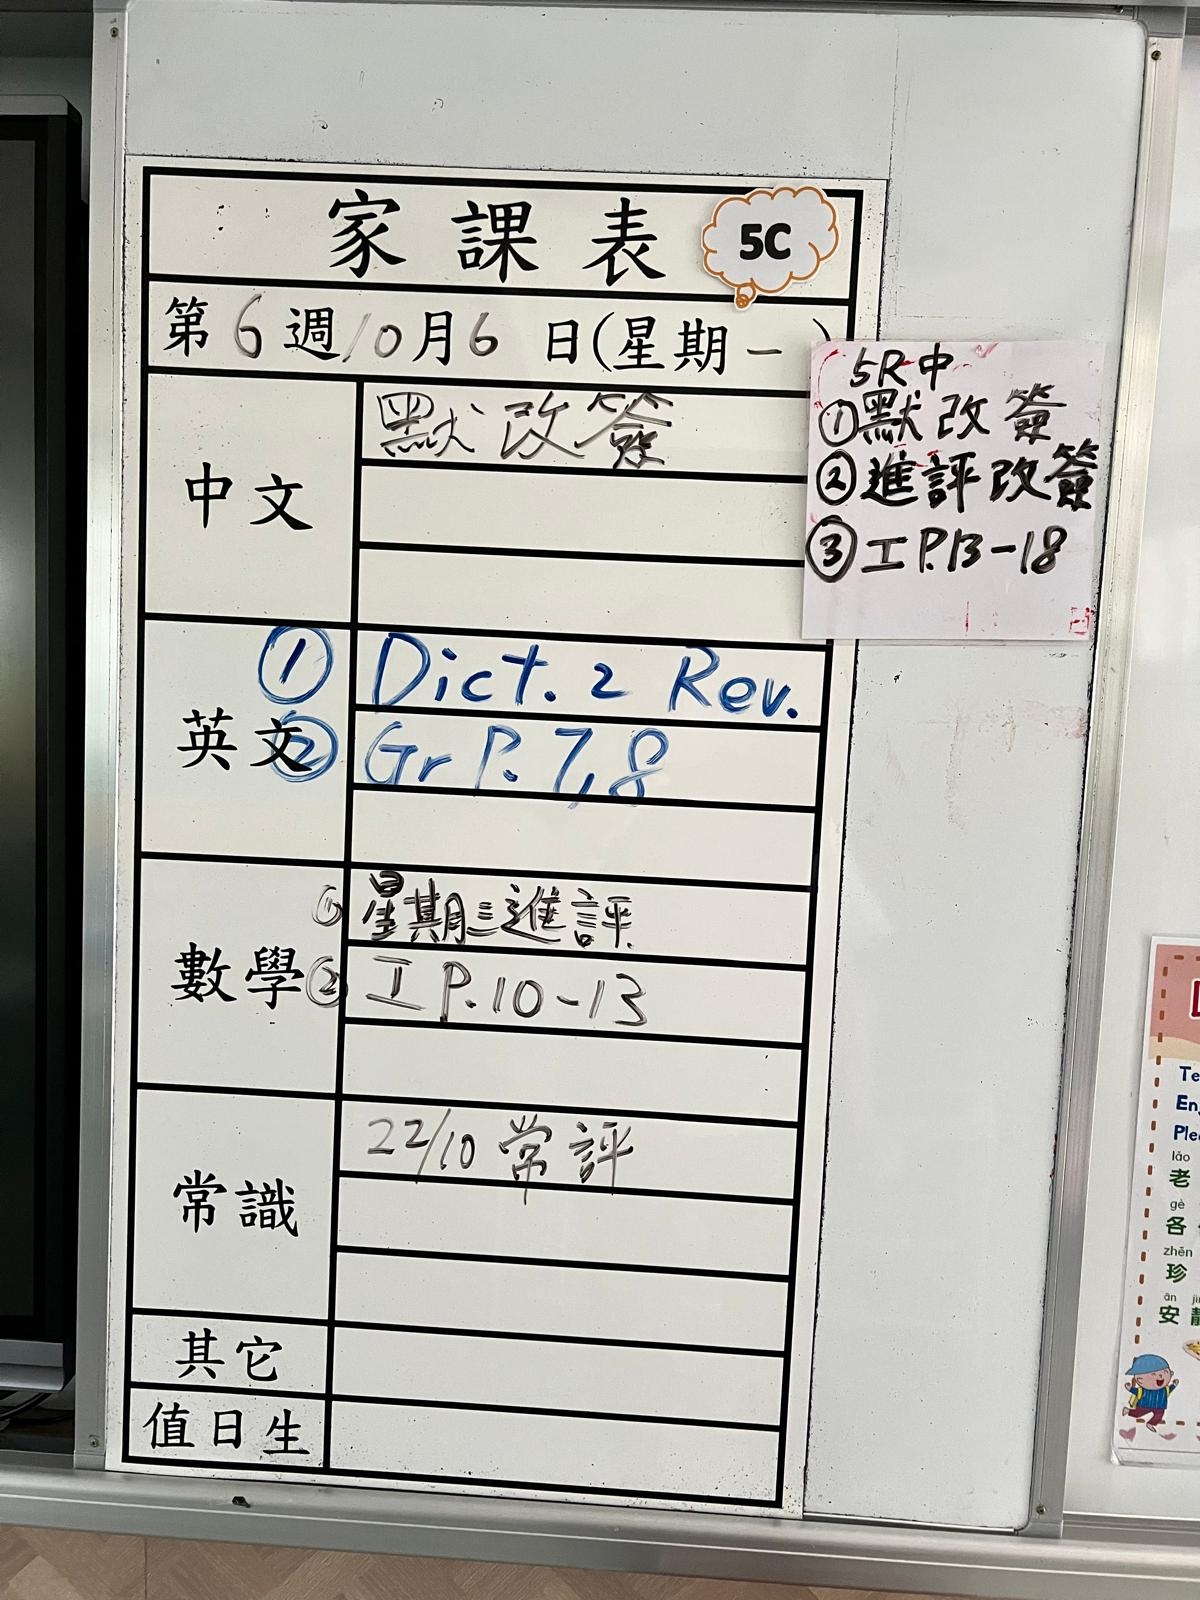 家課表 5C
第6週10月6日(星期一)
中文
默改簽
5R中
①默改簽
②進評改簽
③工P.13-18
英文
① Dict. 2 Rev.
② Gr P. 7,8
數學
① 星期三進評
② 工 P.10-13
常識
22/10 常評
其它
值日生
Te
En
Ple
lǎo
老
gè
各
zhēn
珍
ān jì
安靜